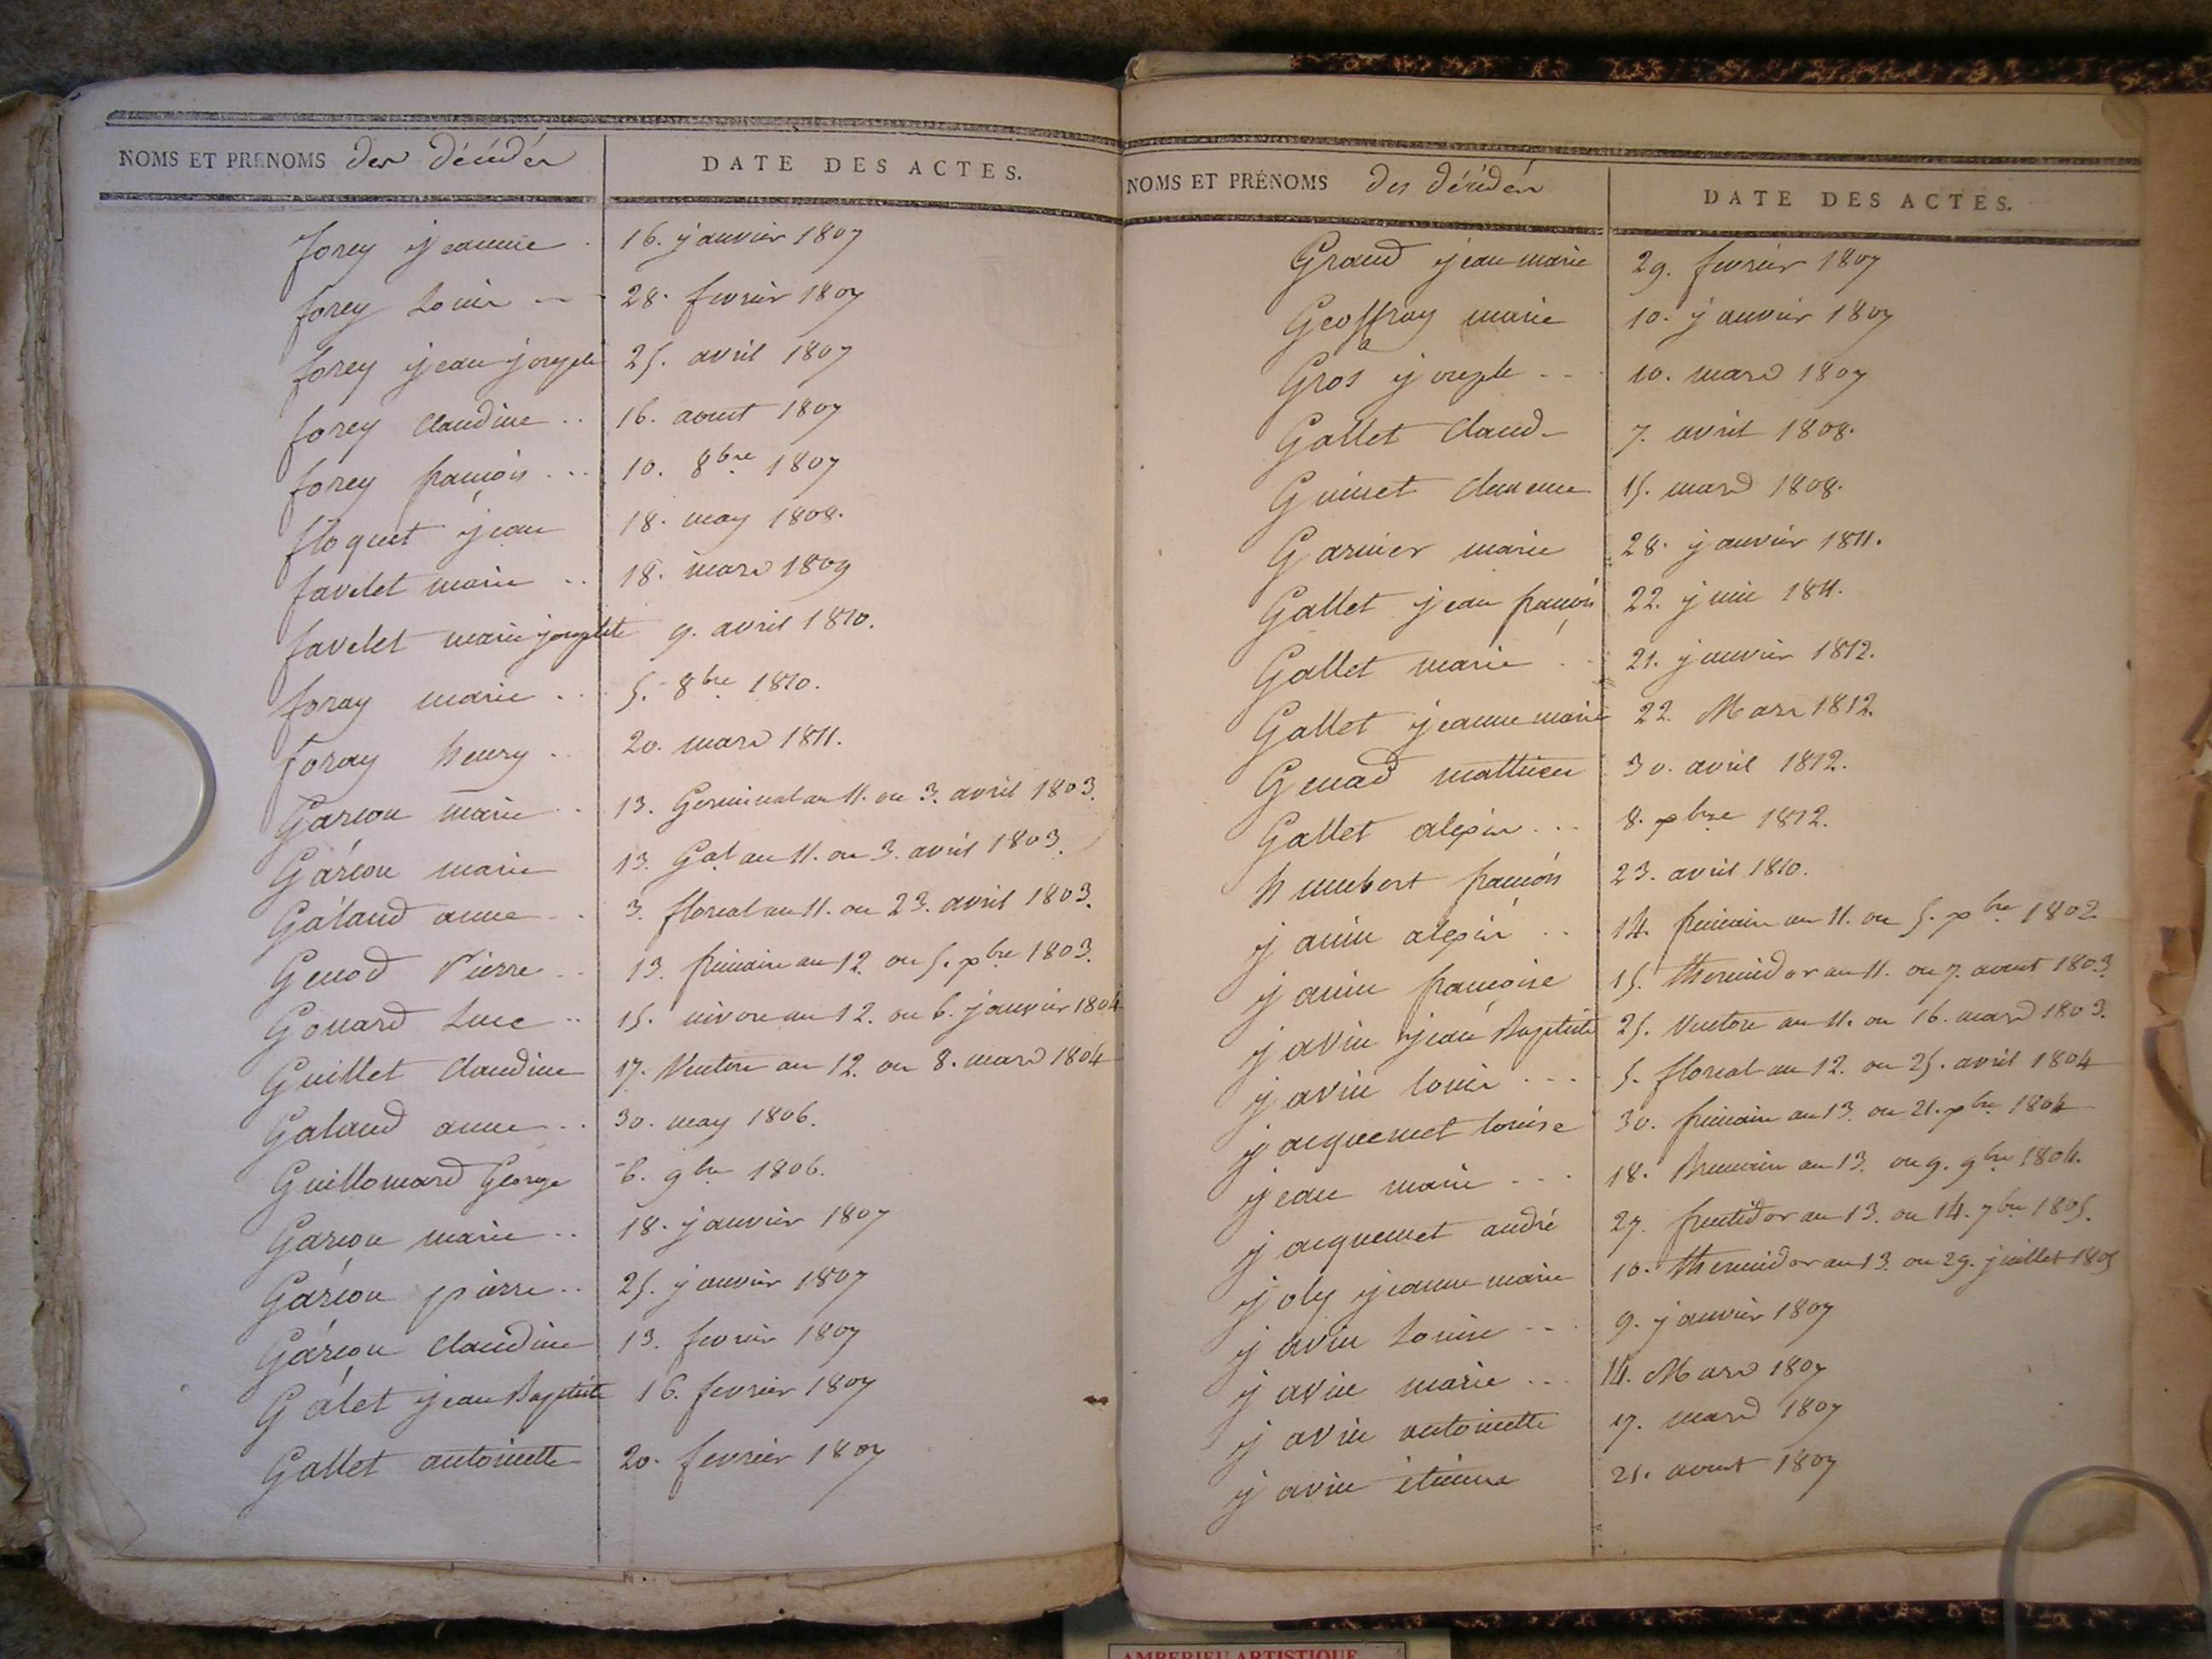 NOMS ET PRENOMS des décédés DATE DES ACTES.
forey jeanne 16. janvier 1807
forey Louis 28. fevrier 1807
forey jean joseph 25. avril 1807
forey Claudine 16. aout 1807
forey françois 10. 8bre 1807
floquet jean 18. may 1808.
favelet marie 18. mars 1809
favelet marie josephte 9. avril 1810.
foray marie 5. 8bre 1810.
foray henry 20. mars 1811.
Garçon marie 13. Germinal an 11. ou 3. avril 1803.
Garçon marie 13. Gal an 11. ou 3. avril 1803.
Galand anne 3. floreal an 11. ou 23. avril 1803.
Genod Pierre 13. frimaire an 12. ou 5. xbre 1803.
Gonard Luce 15. nivose an 12. ou 6. janvier 1804
Guillet Claudine 17. Ventose an 12. ou 8. mars 1804
Galand anne 30. may 1806.
Guillomard George 6. 9bre 1806.
Garçon marie 18. janvier 1807
Garçon pierre 25. janvier 1807
Garçon Claudine 13. fevrier 1807
Galet jean Baptiste 16. fevrier 1807
Gallet antoinette 20. fevrier 1807
NOMS ET PRÉNOMS des décédés DATE DES ACTES.
Grand jean marie 29. fevrier 1807
Geoffray marie 10. janvier 1807
Gros joseph 10. mars 1807
Gallet Claud 7. avril 1808.
Guinet 15. mars 1808.
Garnier marie 28. janvier 1811.
Gallet jean françois 22. juin 1811.
Gallet marie 21. janvier 1812.
Gallet jeanne marie 22. Mars 1812.
Genod mathieu 30. avril 1812.
Gallet alexis 8. xbre 1812.
humbert françois 23. avril 1810.
janin alexis 14. frimaire an 11. ou 5. xbre 1802
janin françoise 15. thermidor an 11. ou 7. aout 1803.
javin jean Baptiste 25. Ventose an 11. ou 16. mars 1803.
javin louis 5. floreal an 12. ou 25. avril 1804
jacquemet louise 30. frimaire an 13. ou 21. xbre 1804
jean marie 18. Brumaire an 13. ou 9. 9bre 1804.
jacquemet andré 27. fructidor an 13. ou 14. 7bre 1805.
joly jeanne marie 10. thermidor an 13. ou 29. juillet 1805
javin Louise 9. janvier 1807
javin marie 14. Mars 1807
javin antoinette 17. mars 1807
javin étienne 21. aout 1807
AMBERIEU ARTISTIQUE